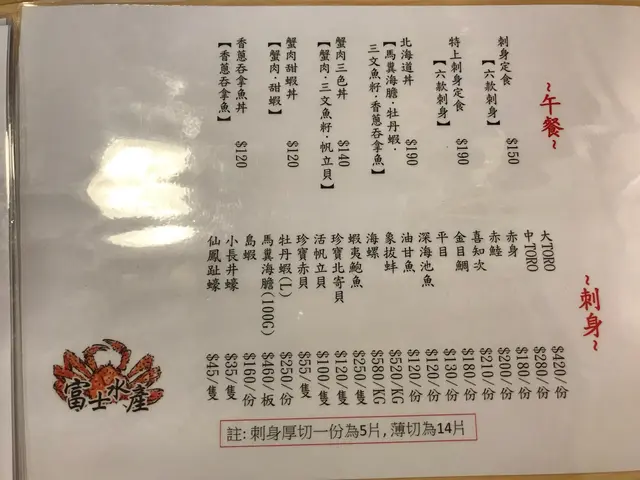 ~午餐~
刺身定食 $150
【六款刺身】
特上刺身定食 $190
【六款刺身】
北海道丼 $190
【馬糞海膽‧牡丹蝦‧
三文魚籽‧香蔥吞拿魚】
蟹肉三色丼 $140
【蟹肉‧三文魚籽‧帆立貝】
蟹肉甜蝦丼 $120
【蟹肉‧甜蝦】
香蔥吞拿魚丼 $120
【香蔥吞拿魚】
~刺身~
大TORO $420/份
中TORO $280/份
赤身 $180/份
赤鯥 $200/份
喜知次 $210/份
金目鯛 $180/份
平目 $130/份
深海池魚 $120/份
油甘魚 $120/份
象拔蚌 $520/KG
海螺 $580/KG
蝦夷鮑魚 $250/隻
珍寶北寄貝 $120/隻
活帆立貝 $100/隻
珍寶赤貝 $55/隻
牡丹蝦(L) $250/份
馬糞海膽(100G) $460/板
島蝦 $160/份
小長井蠔 $35/隻
仙鳳趾蠔 $45/隻
富士水產
註: 刺身厚切一份為5片, 薄切為14片